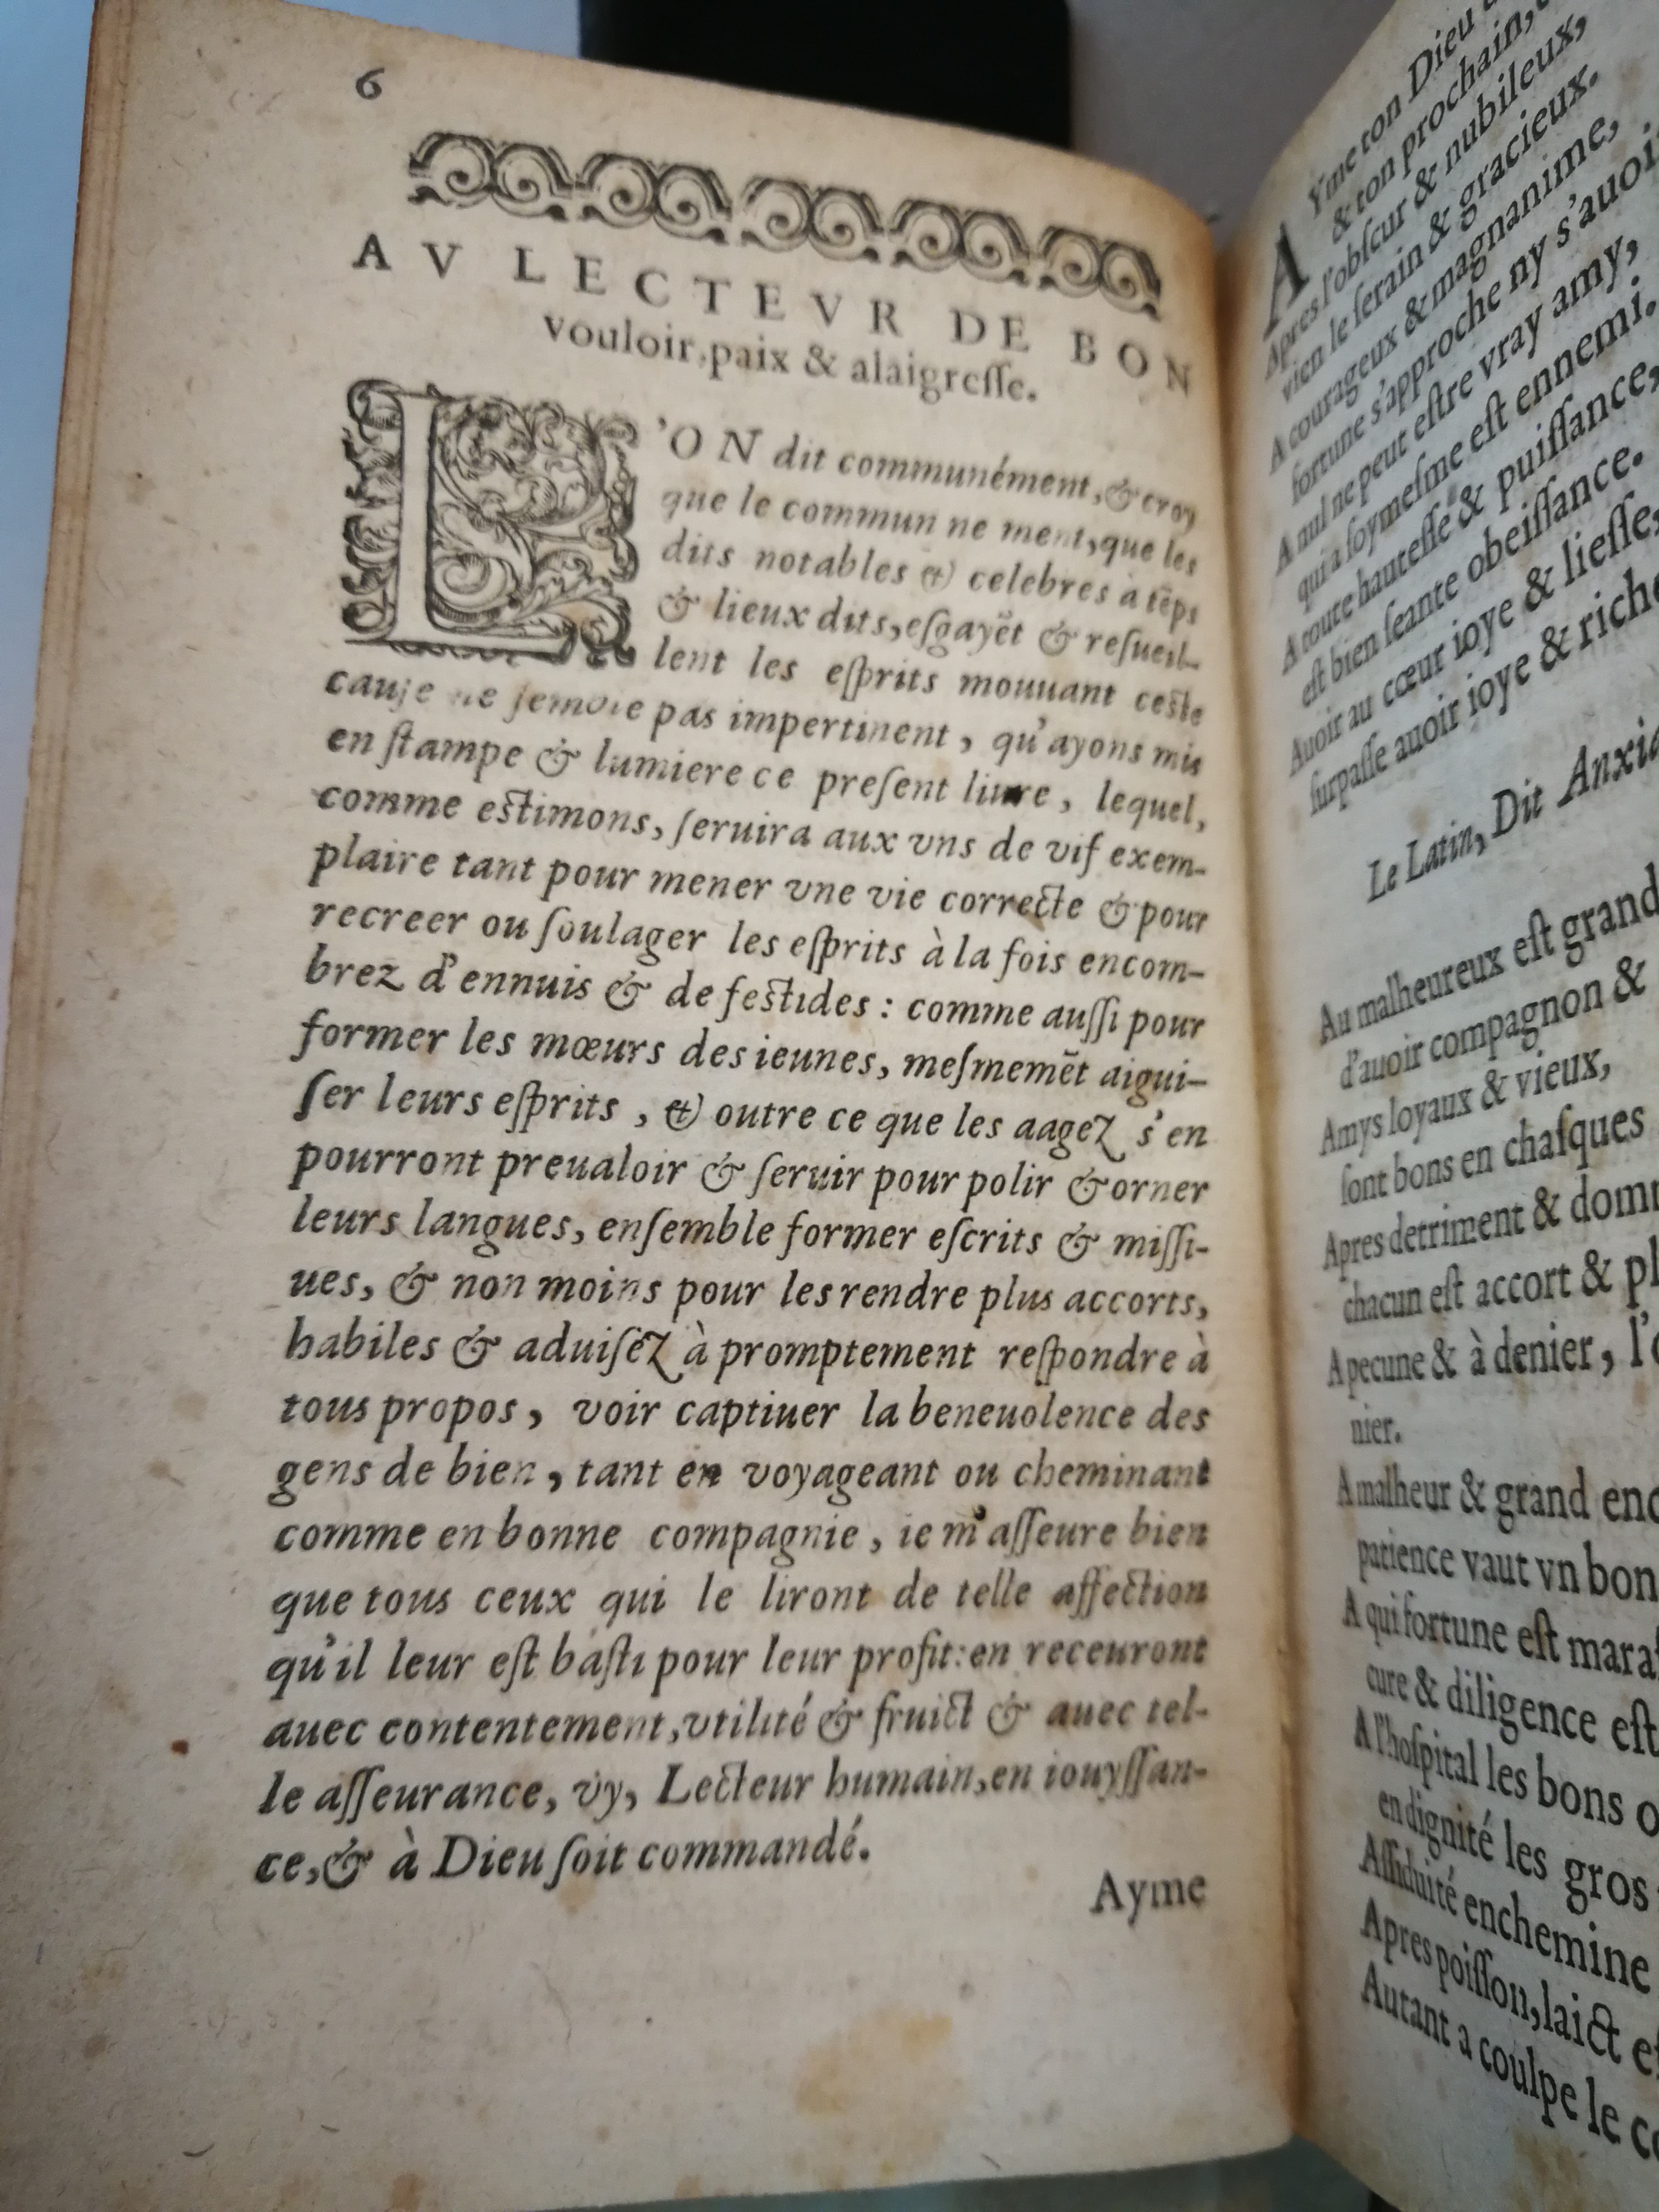 6
AV LECTEVR DE BON
vouloir, paix & alaigreſſe.
L'ON dit communément, & croy
que le commun ne ment, que les
dits notables & celebres à tēps
& lieux dits, eſgayēt & reſueil-
lent les eſprits mouuant ceste
cauſe ne ſemble pas impertinent, qu'ayons mis
en ſtampe & lumiere ce preſent liure, lequel,
comme estimons, ſeruira aux vns de vif exem-
plaire tant pour mener vne vie correcte & pour
recreer ou ſoulager les eſprits à la fois encom-
brez d'ennuis & de festides : comme auſſi pour
former les mœurs des ieunes, meſmemēt aigui-
ſer leurs eſprits, & outre ce que les aagez s'en
pourront preualoir & ſeruir pour polir & orner
leurs langues, enſemble former eſcrits & miſſi-
ues, & non moins pour les rendre plus accorts,
habiles & aduiſéz à promptement reſpondre à
tous propos, voir captiuer la beneuolence des
gens de bien, tant en voyageant ou cheminant
comme en bonne compagnie, ie m'aſſeure bien
que tous ceux qui le liront de telle affection
qu'il leur eſt baſti pour leur profit: en receuront
auec contentement, vtilité & fruict & auec tel-
le aſſeurance, vy, Lecteur humain, en iouyſſan-
ce, & à Dieu ſoit commandé.
Ayme
AYme ton Dieu
& ton prochain,
Apres l'obſcur & nubileux,
vien le ſerain & gracieux.
A courageux & magnanime,
fortune s'approche ny s'auoi
A nul ne peut eſtre vray amy,
qui a ſoymeſme eſt ennemi.
A toute hauteſſe & puiſſance,
eſt bien ſeante obeiſſance.
Auoir au cœur ioye & lieſſe,
ſurpaſſe auoir ioye & riche
Le Latin, Dit Anxia
Au malheureux eſt grand
d'auoir compagnon &
Amys loyaux & vieux,
ſont bons en chaſques
Apres detriment & dom
chacun eſt accort & pl
A pecune & à denier, l'o
nier.
A malheur & grand enc
patience vaut vn bon
A qui fortune eſt mara
cure & diligence eſt
A l'hoſpital les bons o
en dignité les gros
Aſſiduité enchemine
Apres poiſſon, laict eſ
Autant a coulpe le c